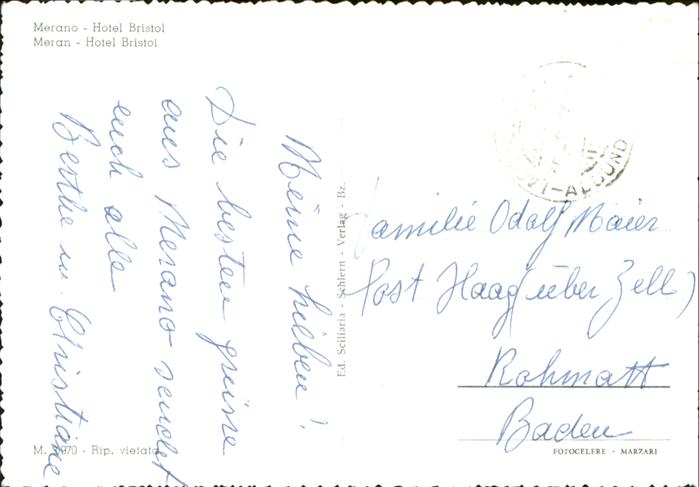 Merano - Hotel Bristol
Meran - Hotel Bristol
Meine lieben!
Die besten grüsse
aus Merano sendet
euch alle
Berthe u. Christiane
Ed. Sciliaria - Schlern - Verlag - Bz.
Familie Adolf Maier
Post Haag (über Zell)
Rohmatt
Baden
M. 970 - Rip. vietata
FOTOCELERE - MARZARI
ALGUND